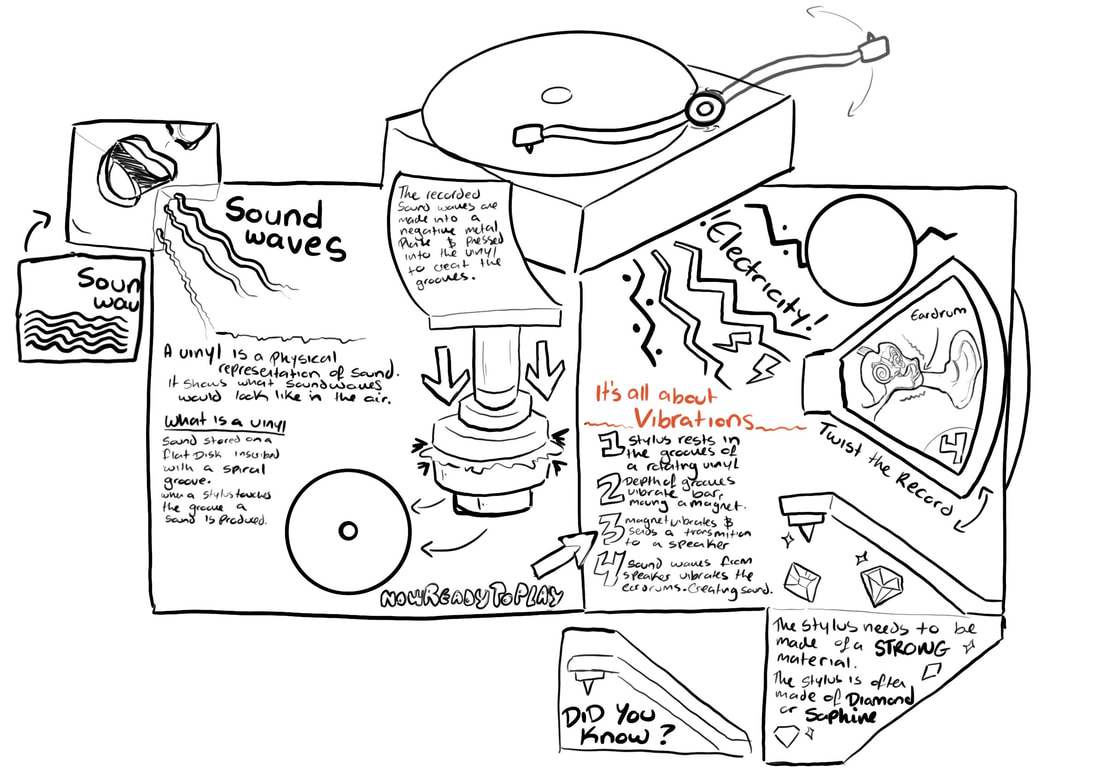 Sound
waves
Soun
wav
The recorded
Sound waves are
made into a
negative metal
Plate & Pressed
into the vinyl
to creat the
grooves.
A vinyl is a Physical
representation of sound.
It shows what soundwaves
would look like in the air.
What is a vinyl
Sound stored on a
flat Disk inscribed
with a spiral
groove.
when a stylus touches
the groove a
sound is produced.
NOW READY TO PLAY
!Electricity!
It's all about
Vibrations
1 Stylus rests in
the grooves of
a rotating vinyl
2 Depth of grooves
vibrate bar,
moving a magnet.
3 magnet vibrates &
sends a transmition
to a speaker
4 Sound waves from
speaker vibrates the
eardrums. Creating sound.
Eardrum
4
Twist the Record
DID YOU
Know?
The stylus needs to be
made of a STRONG
material.
The stylus is often
made of Diamond
or Saphire